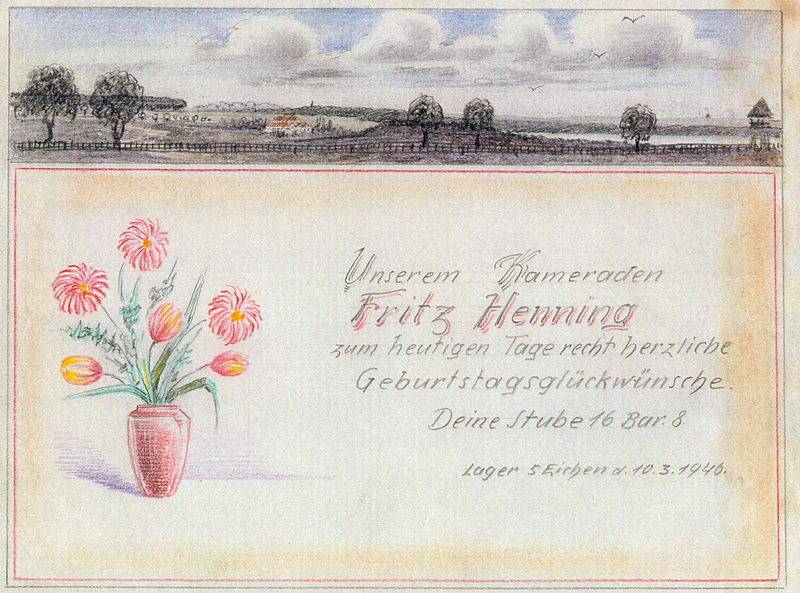 Unserem Kameraden
Fritz Henning
zum heutigen Tage recht herzliche
Geburtstagsglückwünsche.
Deine Stube 16 Bar. 8
Lager 5 Eichen d. 10.3.1946.